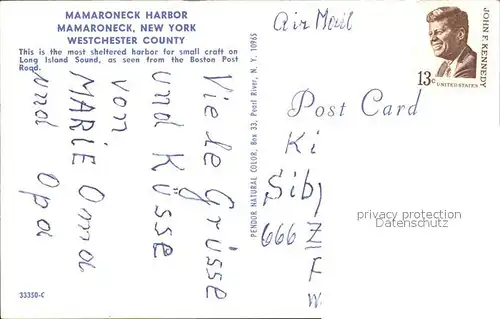 MAMARONECK HARBOR
MAMARONECK, NEW YORK
WESTCHESTER COUNTY
This is the most sheltered harbor for small craft on
Long Island Sound, as seen from the Boston Post
Road.
Viele Grüsse
und Küsse
von
MARIE Oma
und Opa
33350-C
PENDOR NATURAL COLOR, Box 33, Pearl River, N. Y. 10965
Air Mail
JOHN F. KENNEDY
13c
UNITED STATES
Post Card
Ki
Siby
666 Z
F
W
privacy protection
Datenschutz